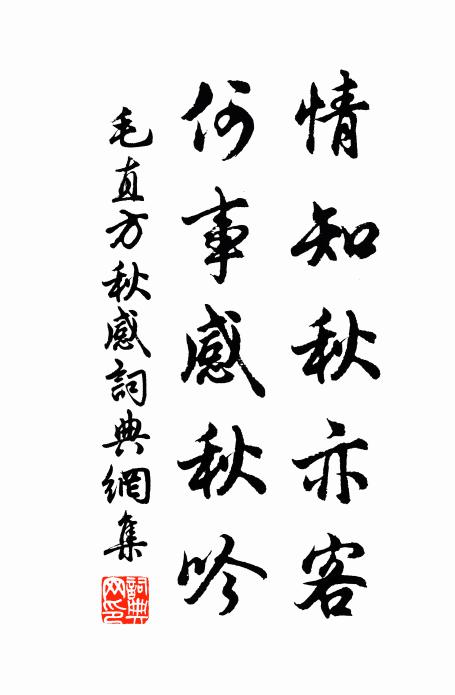 情知秋亦客
何事感秋吟
毛直方秋感詞典網集
詞典網印